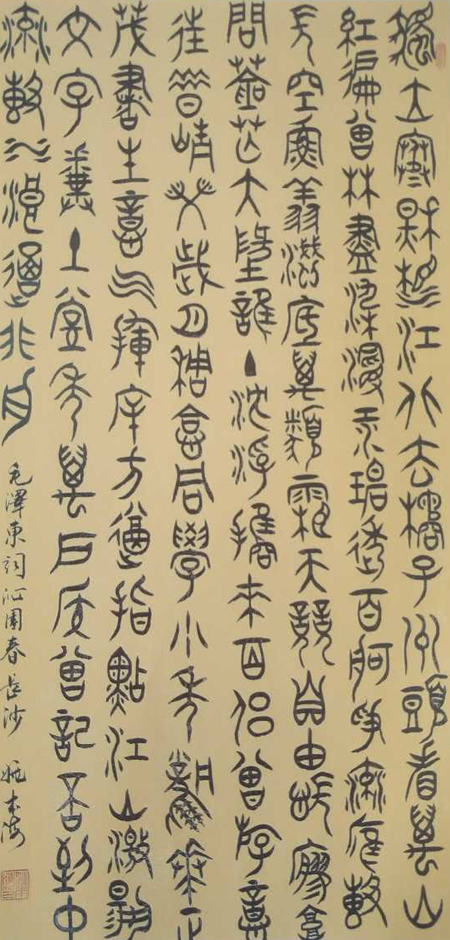 獨立寒秋湘江北去橘子洲頭看萬山
紅遍層林盡染漫江碧透百舸爭流鷹擊
長空魚翔淺底萬類霜天競自由悵寥廓
問蒼茫大地誰主沈浮攜來百侶曾游意
往昔崢嶸歲月稠恰同學少年風華正
茂書生意氣揮斥方遒指點江山激揚
文字糞土當年萬戶侯曾記否到中
流擊水浪遏飛舟
毛澤東詞沁園春長沙